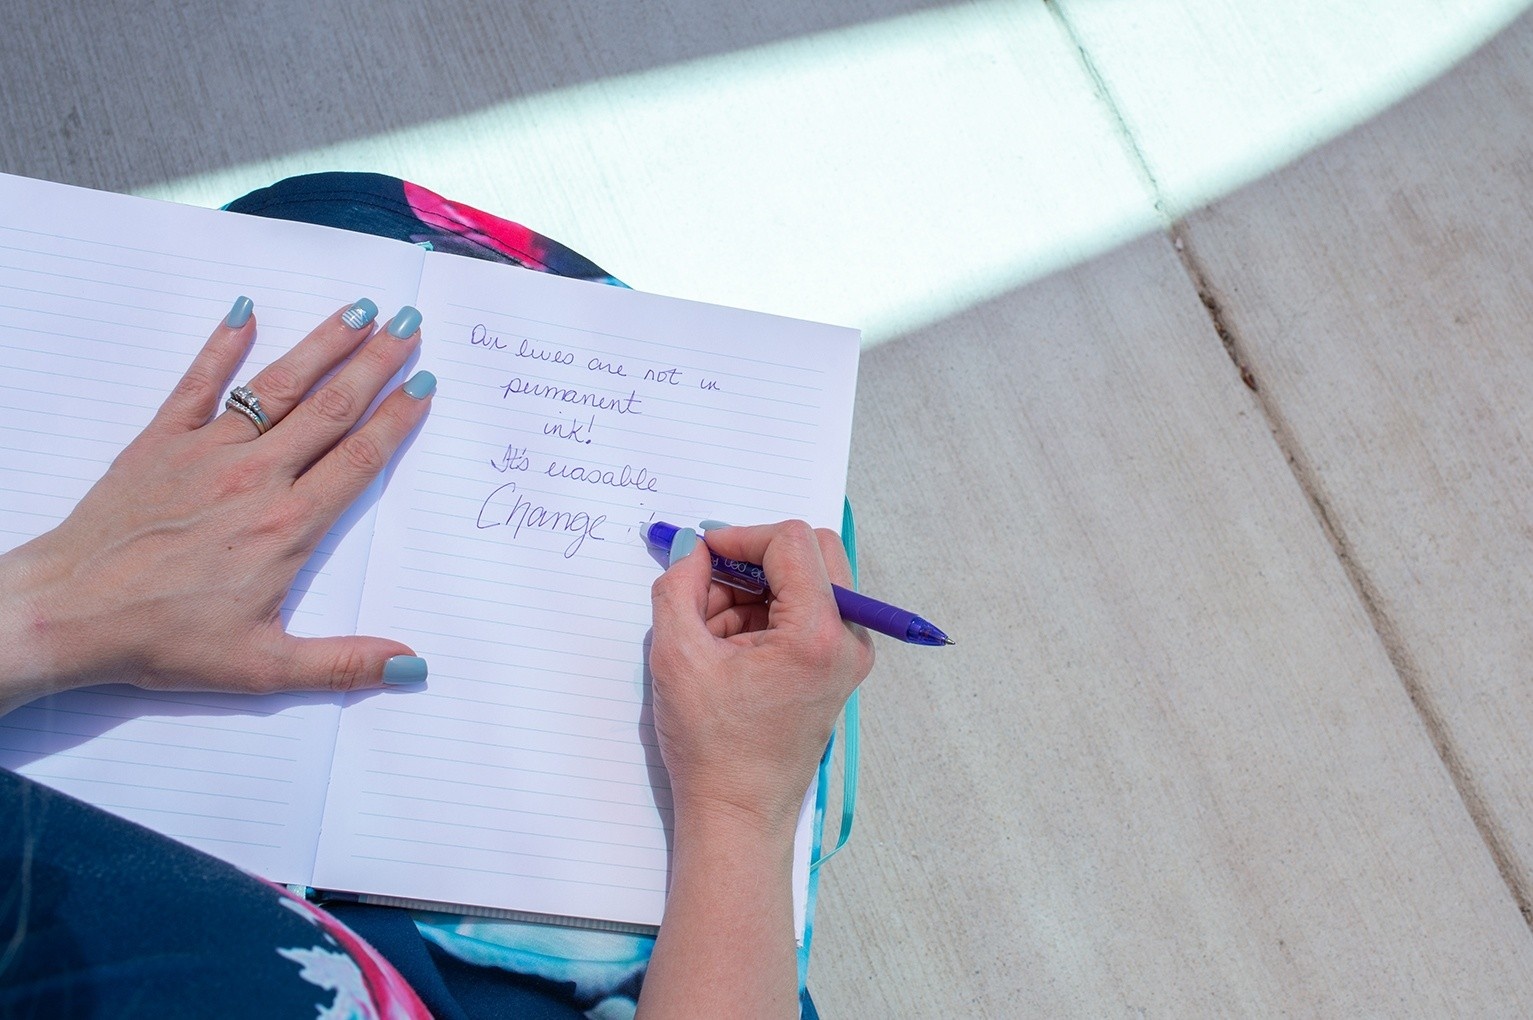 Our lives are not in
permanent
ink!
It's erasable
Change it